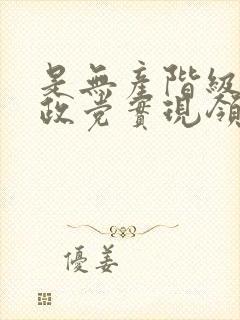 是無產階級
政党實現領
優姜